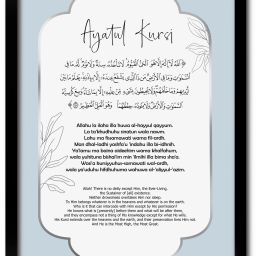 Ayatul Kursi
﴿اللَّهُ لَا إِلَٰهَ إِلَّا هُوَ الْحَيُّ الْقَيُّومُ لَا تَأْخُذُهُ سِنَةٌ وَلَا نَوْمٌ لَهُ مَا فِي
السَّمَٰوَٰتِ وَمَا فِي الْأَرْضِ مَنْ ذَا الَّذِي يَشْفَعُ عِنْدَهُ إِلَّا بِإِذْنِهِ يَعْلَمُ مَا بَيْنَ
أَيْدِيهِمْ وَمَا خَلْفَهُمْ وَلَا يُحِيطُونَ بِشَيْءٍ مِنْ عِلْمِهِ إِلَّا بِمَا شَاءَ وَسِعَ كُرْسِيُّهُ
السَّمَٰوَٰتِ وَالْأَرْضَ وَلَا يَئُودُهُ حِفْظُهُمَا وَهُوَ الْعَلِيُّ الْعَظِيمُ﴾
Allahu la ilaha illa huwa al-hayyul qayyum.
La ta'khudhuhu sinatun wala nawm.
Lahu ma fissamawati wama fil-ardh.
Man dhal-ladhi yashfa'u 'indahu illa bi-idhnih.
Ya'lamu ma baina aideehim wama khalfahum,
wala yuhituna bishai'im min 'ilmihi illa bima sha'a.
Wasi'a kursiyyuhus-samawati wal-ardh,
wala ya'uduhu hifdhuhuma wahuwa al-'aliyyul-'azim.
Allah! There is no deity except Him, the Ever-Living,
the Sustainer of [all] existence.
Neither drowsiness overtakes Him nor sleep.
To Him belongs whatever is in the heavens and whatever is on the earth.
Who is it that can intercede with Him except by His permission?
He knows what is [presently] before them and what will be after them,
and they encompass not a thing of His knowledge except for what He wills.
His Kursi extends over the heavens and the earth, and their preservation tires Him not.
And He is the Most High, the Most Great.